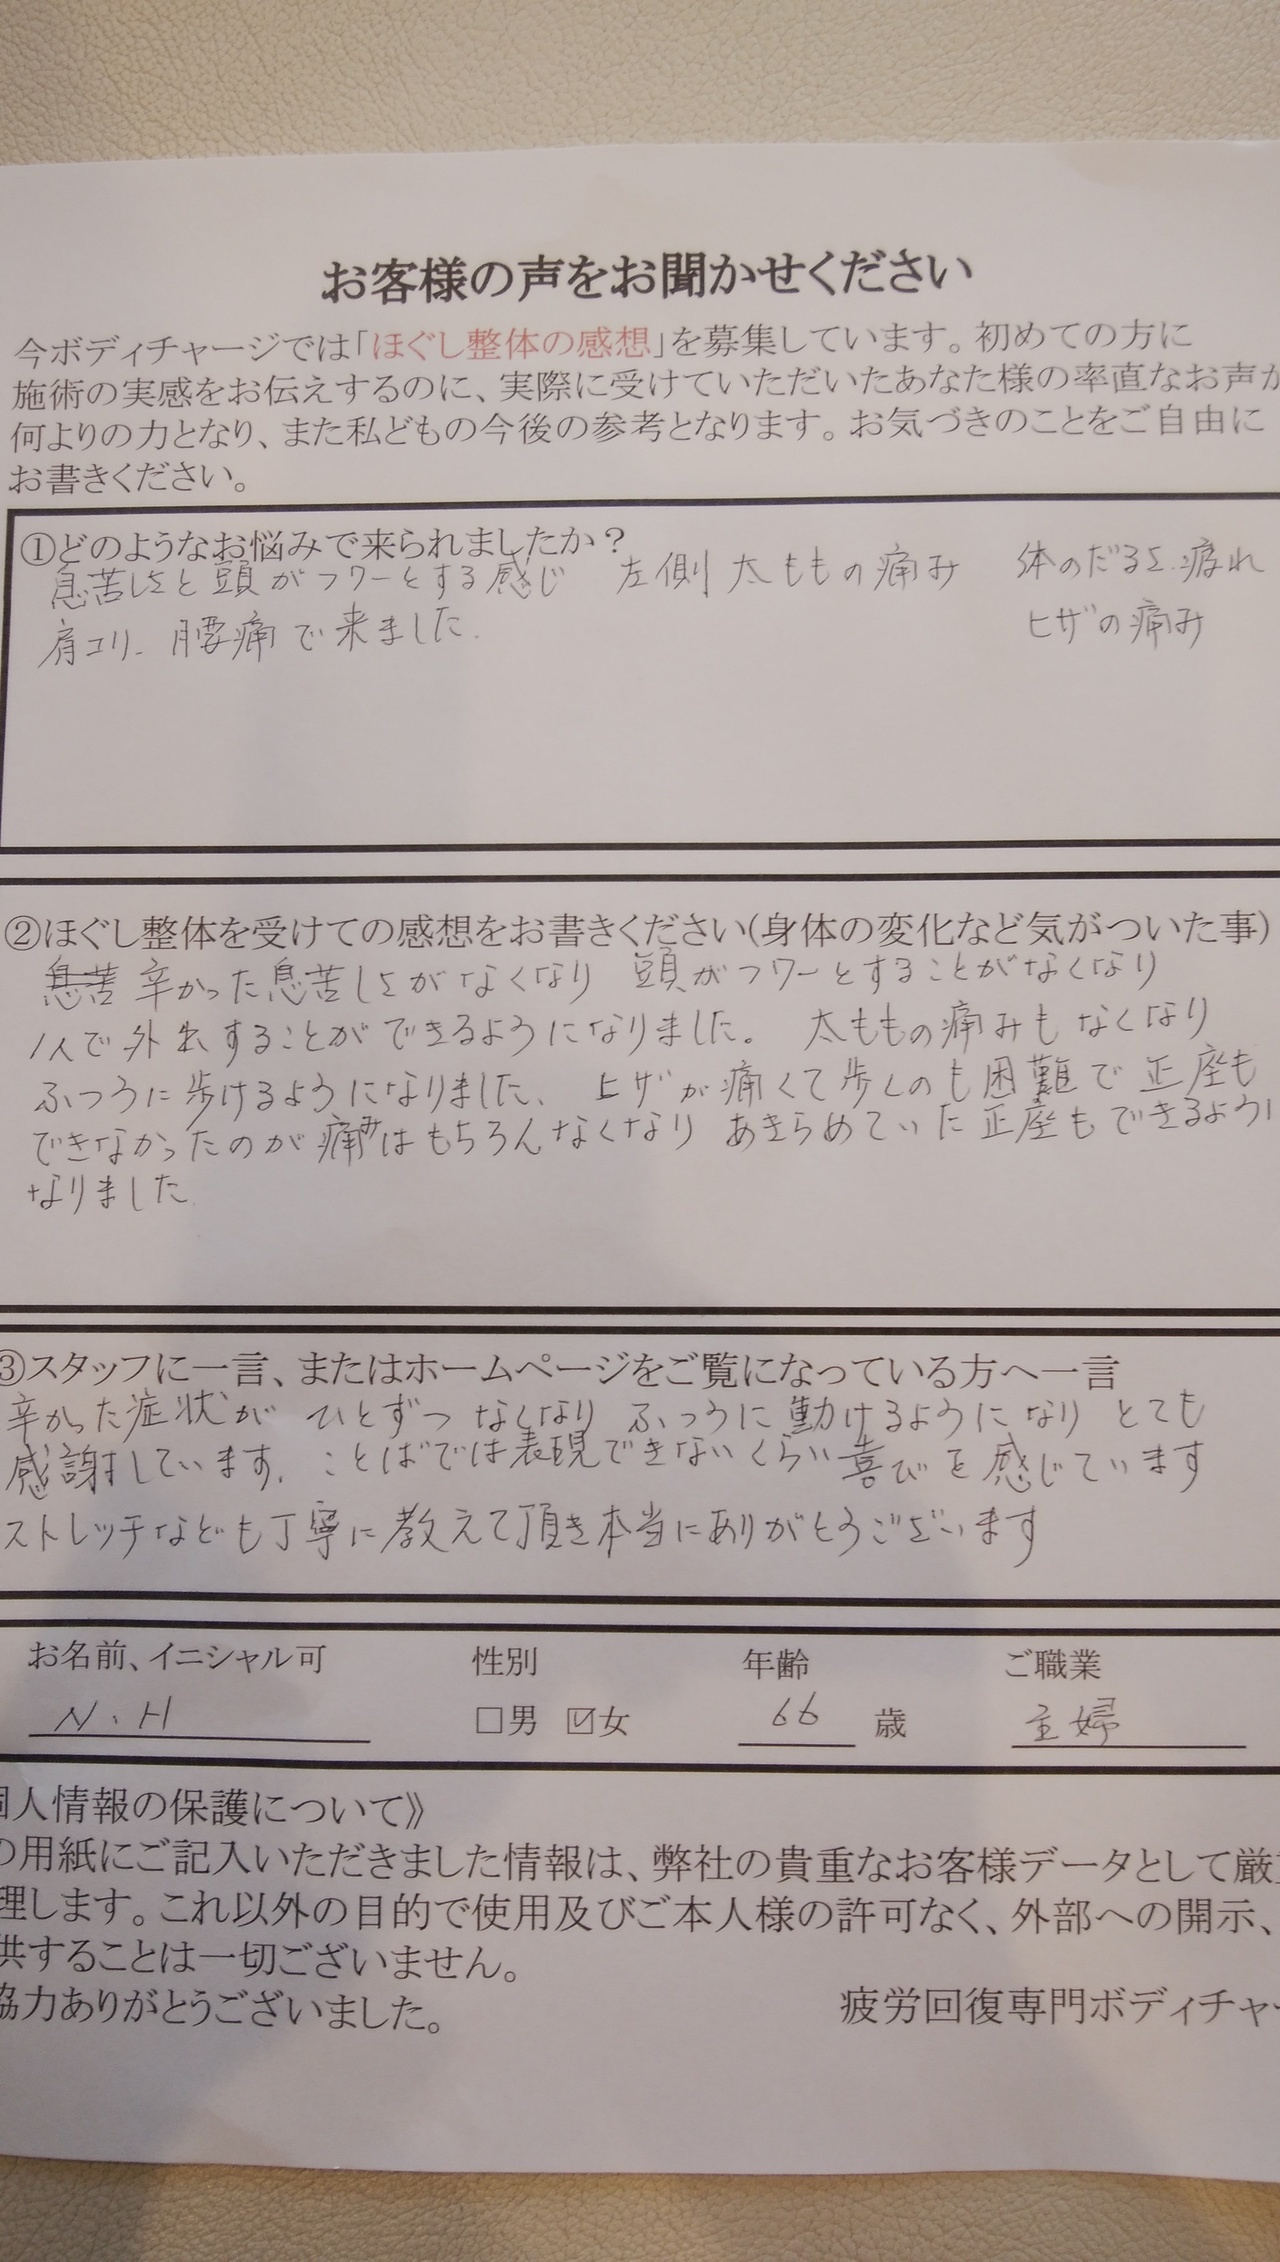 お客様の声をお聞かせください
今ボディチャージでは「ほぐし整体の感想」を募集しています。初めての方に
施術の実感をお伝えするのに、実際に受けていただいたあなた様の率直なお声が
何よりの力となり、また私どもの今後の参考となります。お気づきのことをご自由に
お書きください。
①どのようなお悩みで来られましたか？
息苦しさと頭がフワーとする感じ 左側太ももの痛み 体のだるさ.疲れ
肩コリ、腰痛で来ました. ヒザの痛み
②ほぐし整体を受けての感想をお書きください(身体の変化など気がついた事)
息苦 辛かった息苦しさがなくなり 頭がフワーとすることがなくなり
1人で外出することができるようになりました。 太ももの痛みもなくなり
ふつうに歩けるようになりました、 ヒザが痛くて歩くのも困難で正座も
できなかったのが痛みはもちろんなくなり あきらめていた正座もできるように
なりました
③スタッフに一言、またはホームページをご覧になっている方へ一言
辛かった症状が ひとずつ なくなり ふつうに動けるようになり とても
感謝しています. ことばでは表現できないくらい喜びを感じています
ストレッチなども丁寧に教えて頂き本当にありがとうございます
お名前、イニシャル可 性別 年齢 ご職業
N.H □男 ☑女 66 歳 主婦
個人情報の保護について》
の用紙にご記入いただきました情報は、弊社の貴重なお客様データとして厳重
理します。これ以外の目的で使用及びご本人様の許可なく、外部への開示、
供することは一切ございません。
協力ありがとうございました。 疲労回復専門ボディチャー